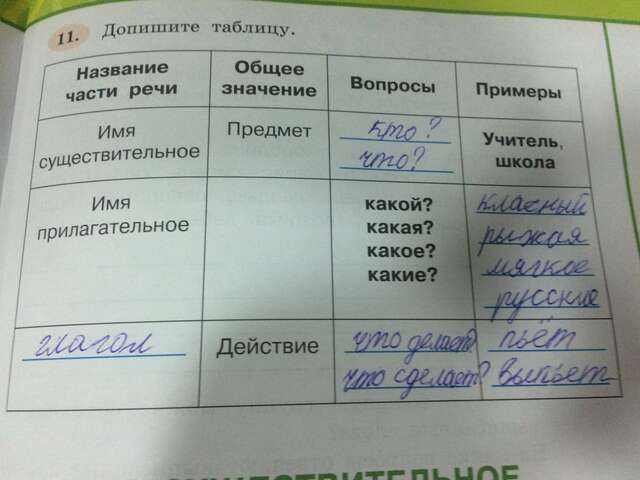 11. Допишите таблицу.
Название части речи
Общее значение
Вопросы
Примеры
Имя существительное
Предмет
кто?
что?
Учитель,
школа
Имя прилагательное
какой?
какая?
какое?
какие?
классный
рыжая
мягкое
русские
глагол
Действие
что делает?
что сделает?
пьёт
выпьет